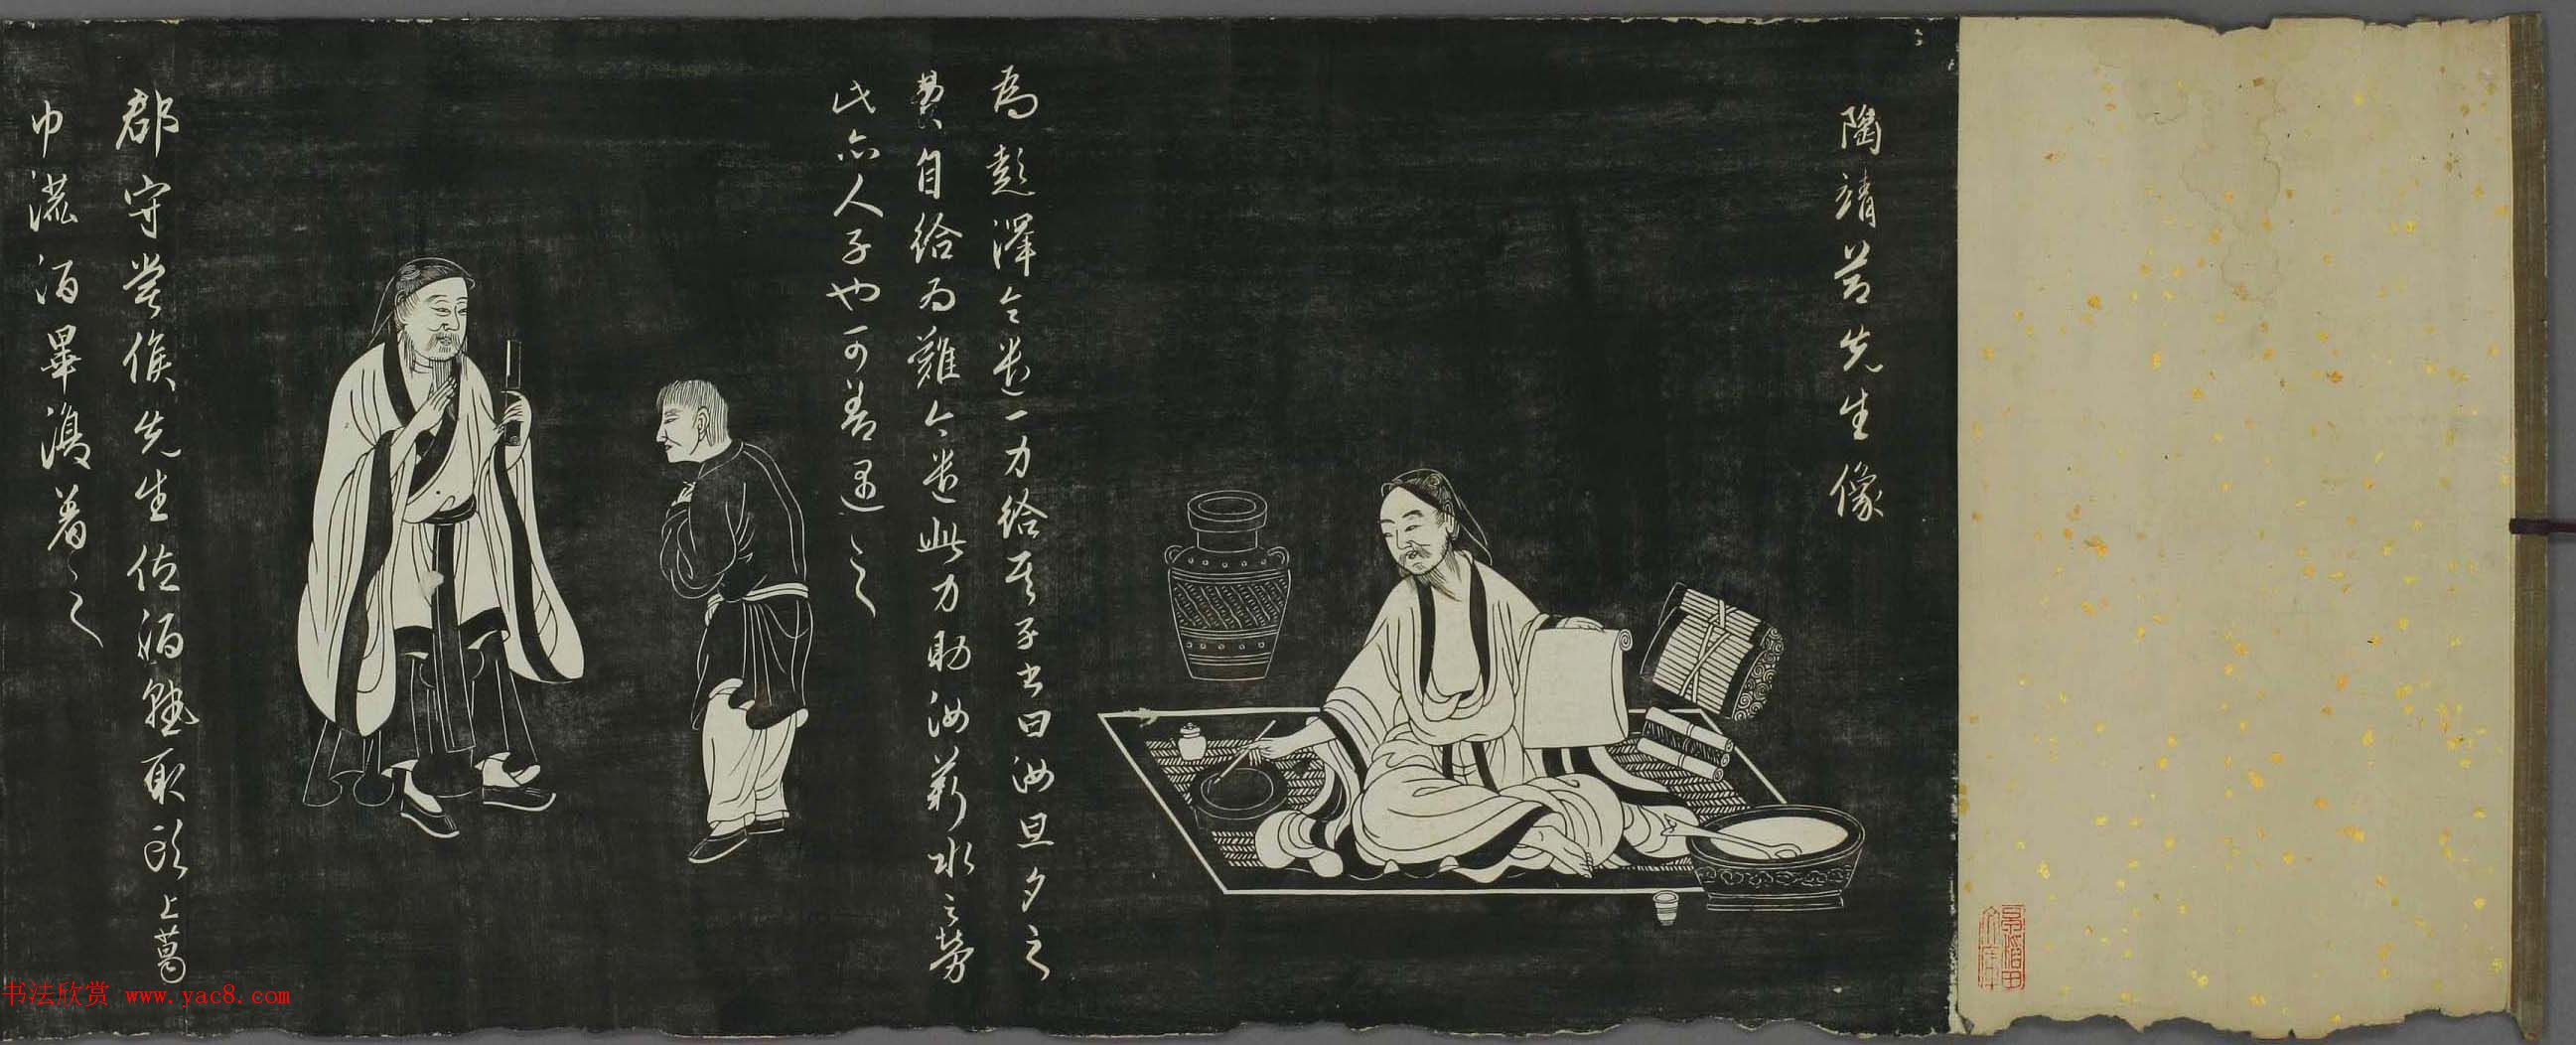 陶靖节先生像
為彭澤令遣一力給其子书曰汝旦夕之
費自給为難今遣此力助汝薪水之勞
此亦人子也可善遇之
郡守嘗候先生值酒熟取头上葛
巾漉酒畢復着之
书法欣赏 www.yac8.com